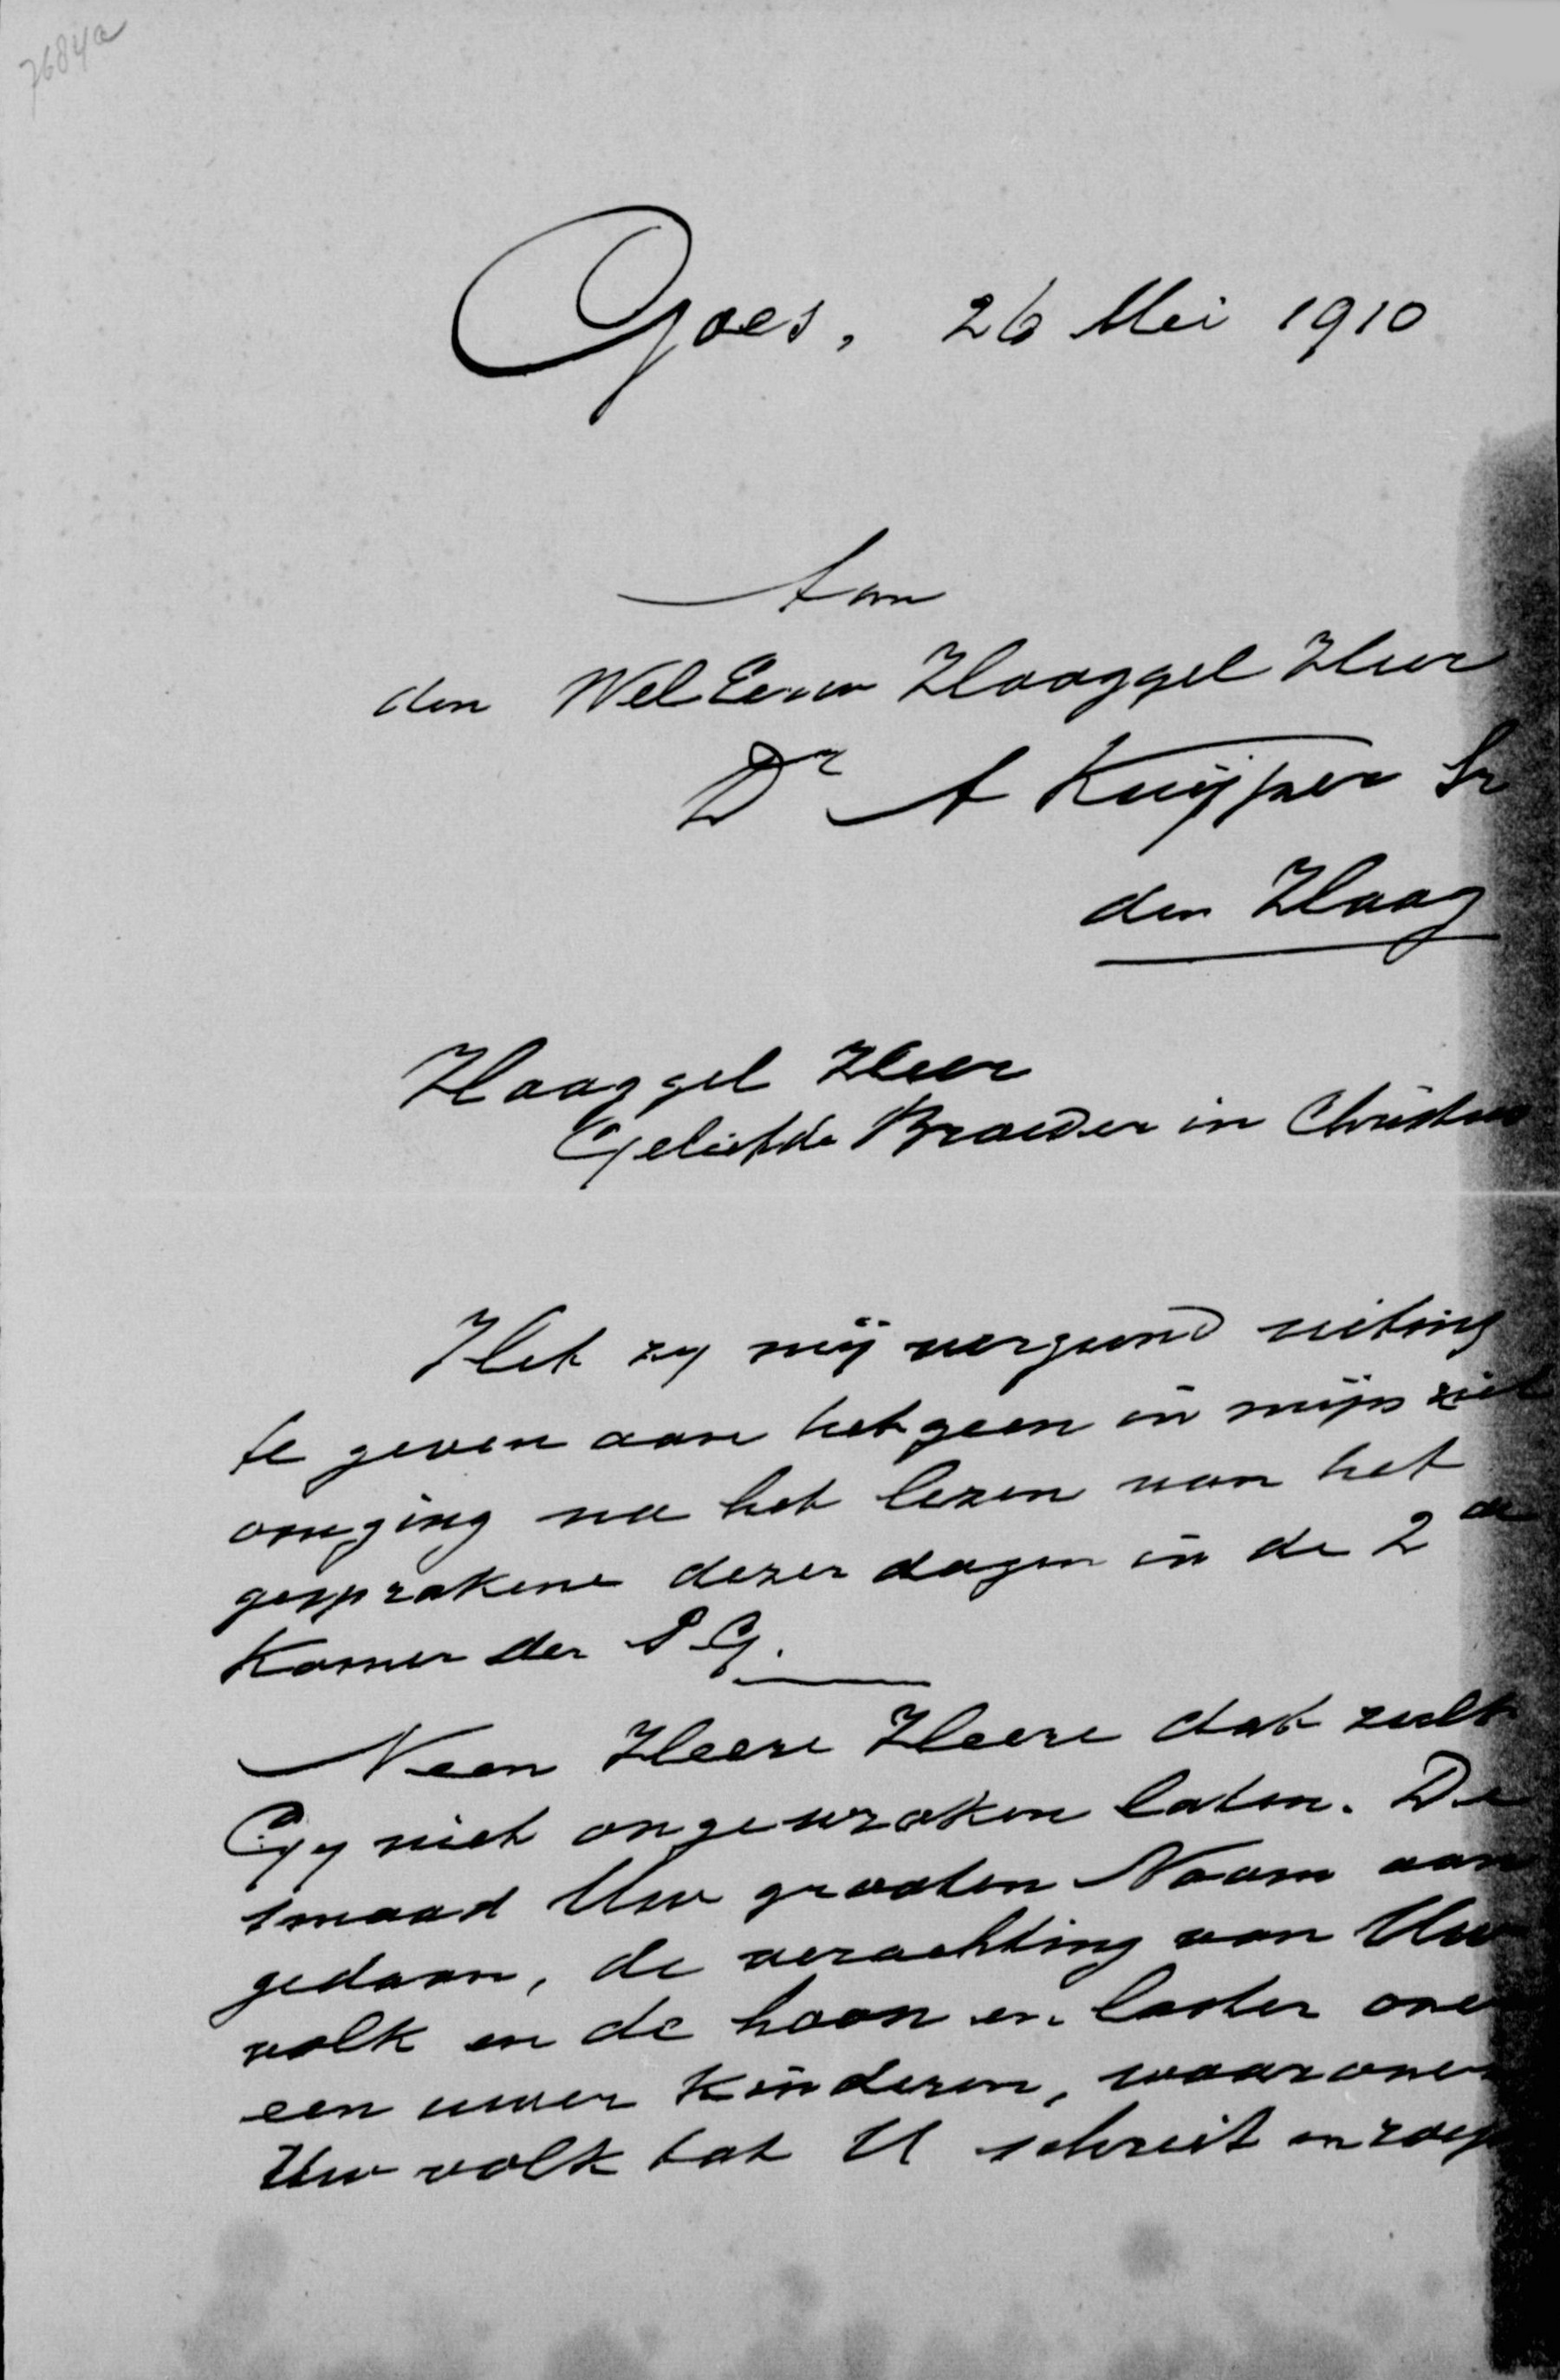 7684a
Goes, 26 Mei 1910
Aan
den WelEerw Hooggel Heer
Dr A Kuijper Sr
den Haag
Hooggel Heer
Geliefde Broeder in Christus
Het zy mij vergund uiting
te geven aan hetgeen in mijn ziel
omging na het lezen van het
gesprokene dezer dagen in de 2de
Kamer der S G.
Neen Heere Heere dat zult
Gy niet ongewroken laten. De
smaad Uw grooten Naam aan
gedaan, de verachting van Uw
volk en de hoon en laster over
een uwer kinderen, waarover
Uw volk tot U schreit en roept